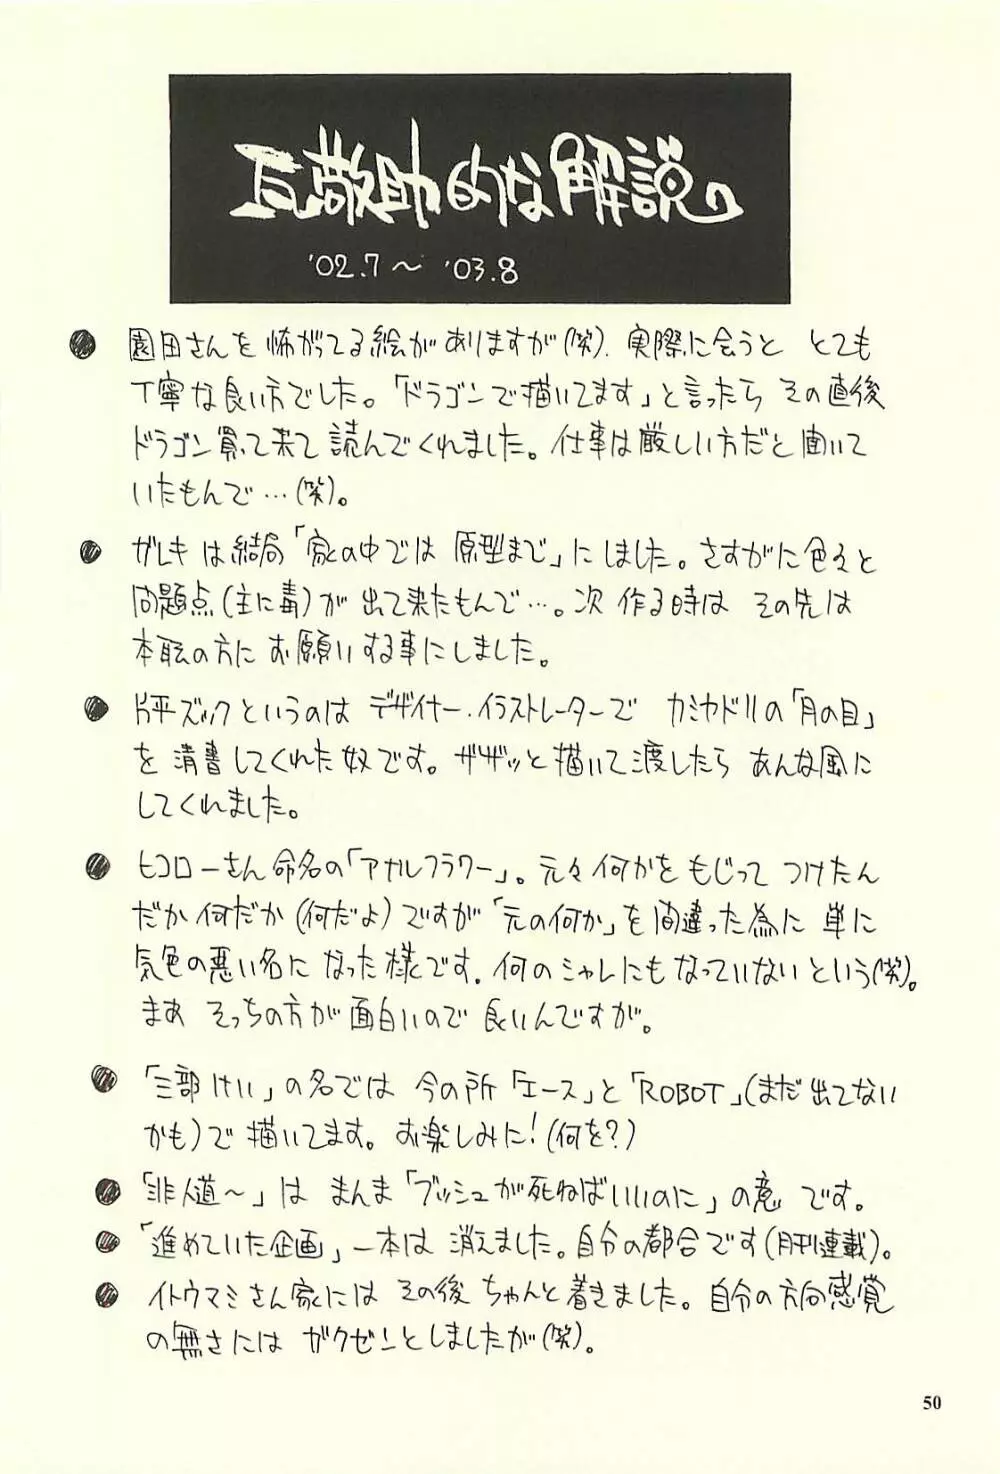 瓦敬助的な解説。
'02.7〜'03.8
● 園田さんを怖がってる絵がありますが(笑)、実際に会うと とても
丁寧な良い方でした。「ドラゴンで描いてます」と言ったら その直後
ドラゴン買って来て 読んでくれました。仕事は厳しい方だと 聞いて
いたもんで…(笑)。
● ガレキは結局「家の中では 原型まで」にしました。さすがに色々と
問題点(主に毒)が 出て来たもんで…。次 作る時は その先は
本職の方に お願いする事にしました。
● 片平ズックというのは デザイナー・イラストレーターで カミヤドリの「月の目」
を 清書してくれた奴です。ザザッと描いて渡したら あんな風に
してくれました。
● ヒコローさん命名の「アナルフラワー」。元々何かを もじって つけたん
だか何だか(何だよ)ですが「元の何か」を間違った為に 単に
気色の悪い名に なった様です。何のシャレにもなっていないという(笑)。
まあ そっちの方が面白いので 良いんですが。
● 「三部けい」の名では 今の所「エース」と「ROBOT」(まだ出てない
かも)で 描いてます。お楽しみに!(何を?)
● 「非人道〜」は まんま「ブッシュが死ねばいいのに」の意 です。
● 「進めていた企画」一本は 消えました。自分の都合です(月刊連載)。
● イトウマミさん家には その後 ちゃんと着きました。自分の方向感覚
の無さには ガクゼンとしましたが(笑)。
50